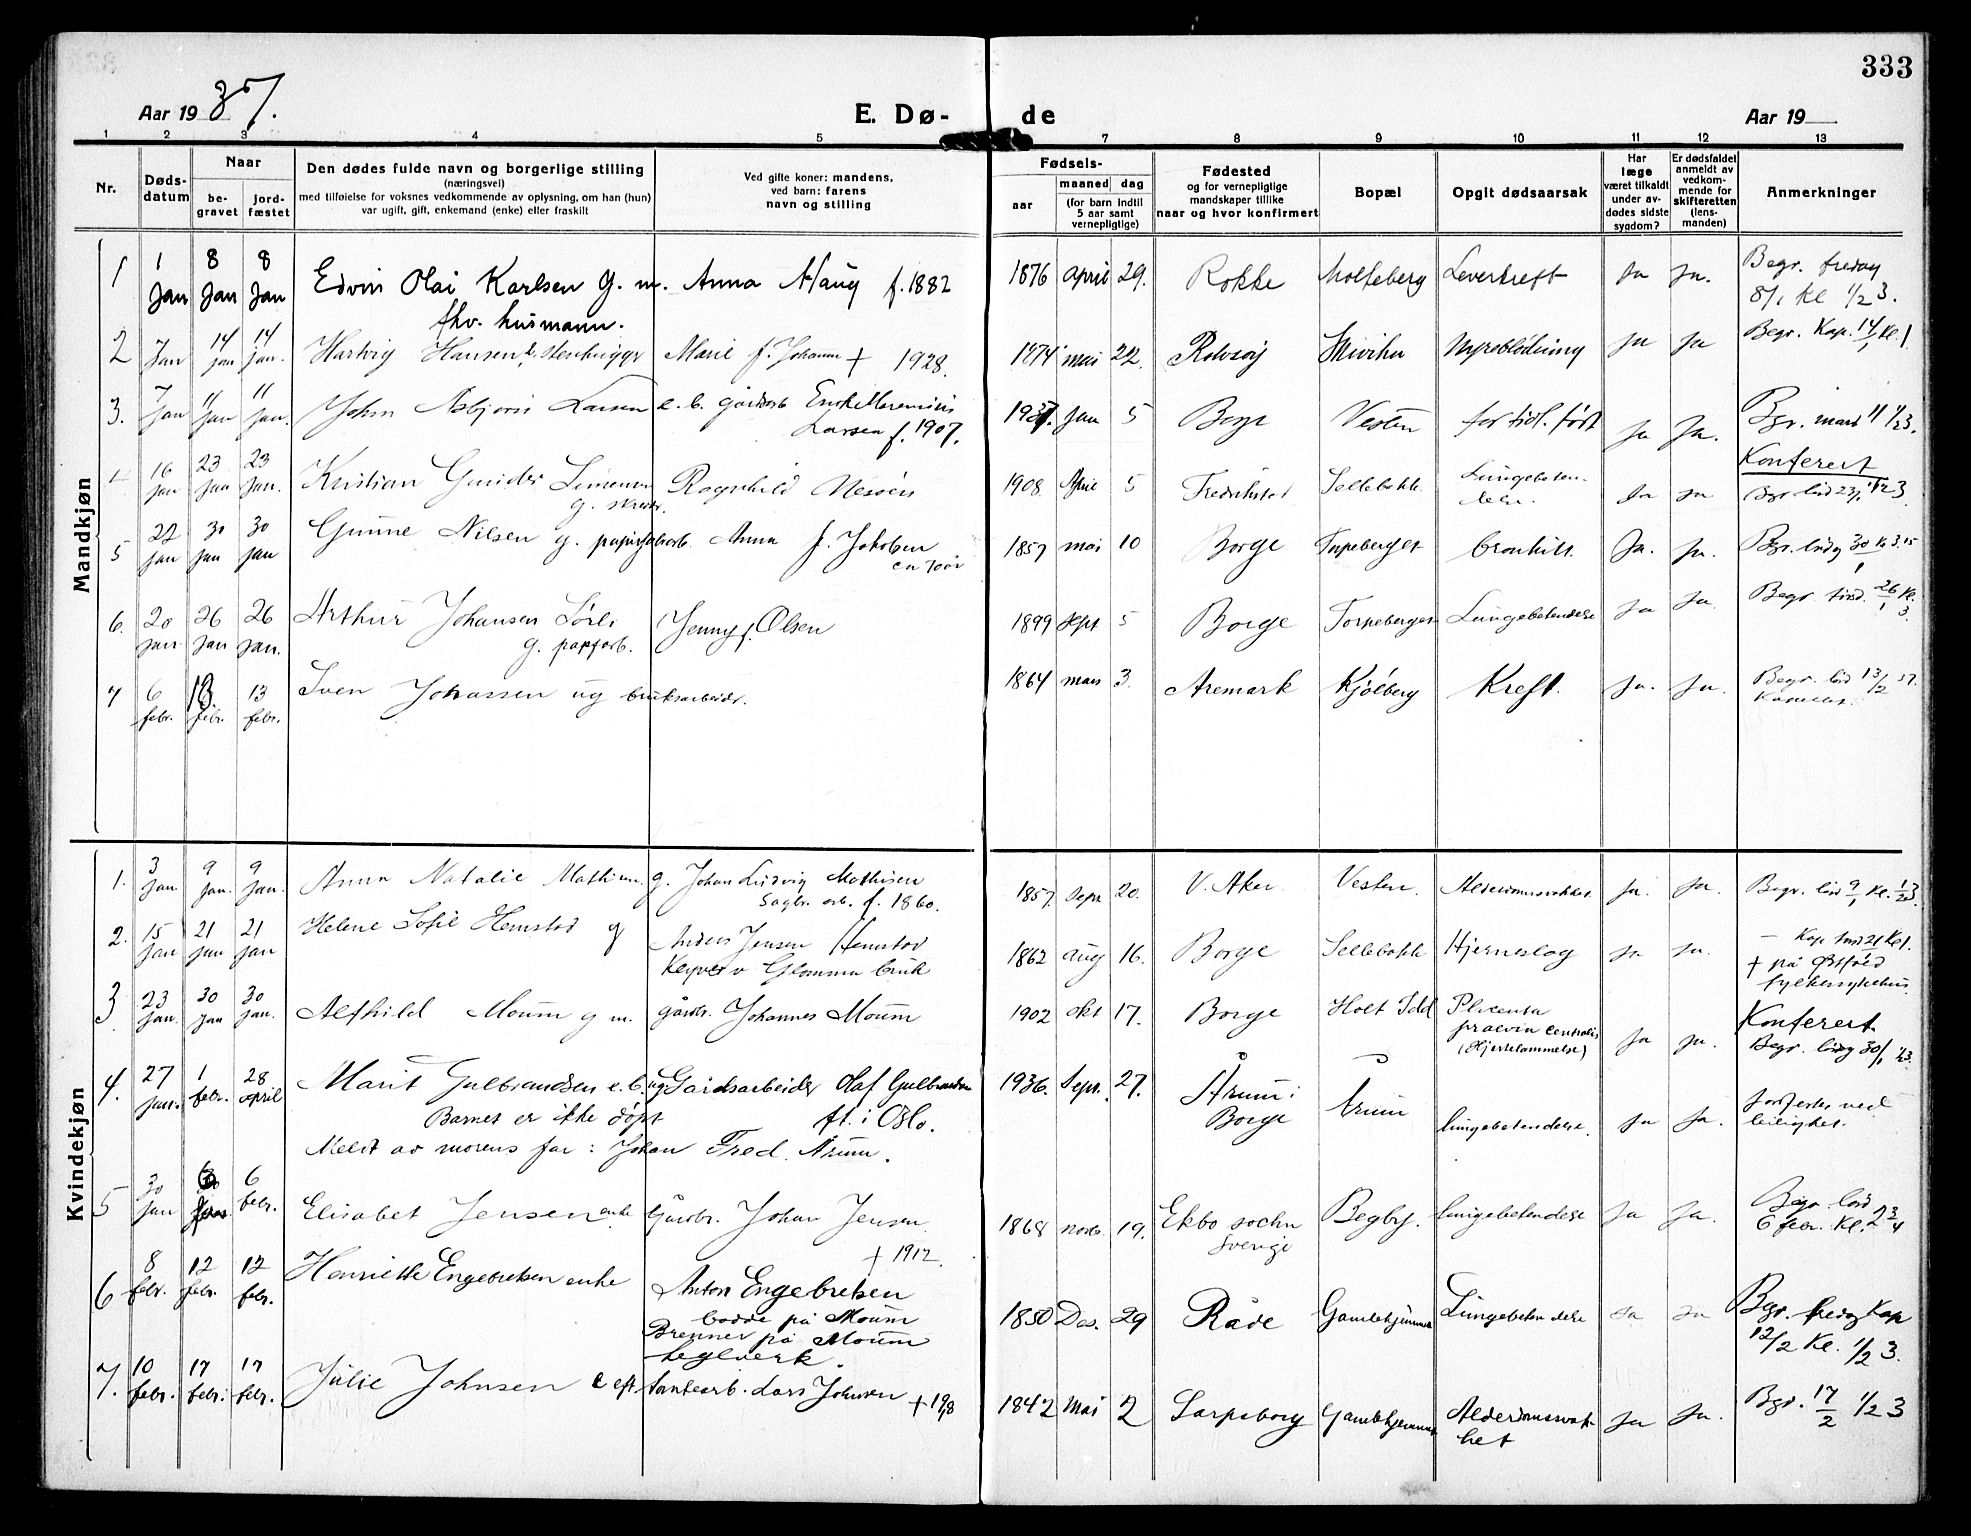 333
Aar 19 37.
E. Dø-
de
Aar 19
1 2 3 4 5 7 8 9 10 11 12 13
Nr.
Døds-
datum
Naar
be-
gravet
jord-
fæstet
Den dødes fulde navn og borgerlige stilling
(næringsvei)
med tilføielse for voksnes vedkommende av oplysning, om han (hun)
var ugift, gift, enkemand (enke) eller fraskilt
Ved gifte koner: mandens,
ved barn: farens
navn og stilling
Fødsels-
aar
maaned
dag
(for barn indtil
5 aar samt
vernepligtige)
Fødested
og for vernepligtige
mandskaper tillike
naar og hvor konfirmert
Bopæl
Opgit dødsaarsak
Har
læge
været tilkaldt
under av-
dødes sidste
sygdom?
Er dødsfaldet
anmeldt av
vedkom-
mende for
skifteretten
(lens-
manden)
Anmerkninger
Mandkjøn
1 1 Jan 8 Jan 8 Jan Edvin Olai Karlsen g. m. Anna Haug f. 1882 1876 april 29. Rokke Molteberg Leverkreft Ja Ja. Begr. fredag
fhv. husmann. 8/1 Kl 1/2 3.
2 Jan 14 jan 14 jan. Hartvig Hansen Marie f. Johann + 1928. mai 22. Rolvsøy Ja Ja Begr. Kap. 14/1 Kl. 1
3. 7 Jan 11 jan 11 jan. John Asbjørn Larsen e. b. gårdsarb 1937. Jan 5 Borge Vesten for tidl. født Ja Ja. Bgr. 11/1 1/2 3.
Larsen f. 1907.
4 16 jan 23 jan 23 Jan. Kristian Ragnhild 1908 5 Fredrikstad Sellebakk Lungebeten- Ja Ja Konferert
g. delse. 23/1 1/2 3
5 22 jan 30 jan 30 jan Gunne Nilsen g. Anna f. Jakobsen 1857 mai 10 Borge Torpeberget bronkitt. Ja. Ja. 30/1
6. 20 jan 26 jan 26 jan. Arthur Johansen Sørli Jenny f. Olsen 1899 sept 5 Borge Torpeberget Lungebetendelse Ja Ja. Begr. 26/1 Kl. 3.
g. papfarb.
7 6 febr. 13. febr. 13 febr. Sven Johassen ug bruksarbeidr. 1864 mars 3. Aremark Kjølberg Kreft. Ja. Ja. Begr. 13/2 37.
Kvindekjøn
1. 3 Jan 9 jan. 9 Jan. Anna Natalie g. Johan Ludvig Mathisen 1857. Sept 20. V. Aker Vesten. Ja. Ja. Begr. 9/1 Kl. 1/2 3.
arb. f. 1860.
2. 15 jan 21 jan 21 jan Helene Sofie Hemstad g Anders Jensen Hemstad 1862 aug 16. Borge Sellebakk Hjerneslag Ja Ja. Kap 21/1 Kl 1.
v Glomma bruk + på Østfold
fylkessykehus
3 23 jan. 30 jan 30 jan. Alfhild Moum g m. gårdbr. Johannes Moum 1902 okt 17. Borge Holt Idd Placenta Ja Ja. Konferert
prævia centralis Begr. 30/1 1/2 3.
(Hjertelammelse)
4. 27 jan. 1 febr. 28 april Marit Gulbrandsen e. b. ug Gaardsarbeider Olaf Gulbrandsen 1936. Sept. 27. Årum i Årum lungebetendelse. Ja Ja. Jordfestes ved
Barnet er ikke døpt ft. i Oslo. Borge leilighet.
Meldt av morens far: Johan Fred. Årum.
5 30 jan 6 febr. Elisabet Jensen enke Gårdbr. Johan Jensen 1868 novb. 19. Ekbo sochn Begby. lungebetendelse Ja Ja. Begr. lørd
+ 1912. Sverige 6 febr. Kl. 2 3/4
6 8 febr. 12 febr. 12 febr. Henriette Engebretsen enke Anton Engebretsen 1850 Des. 29 Råde Gamlehjemmet Lungebetendelse Ja Ja Begr. fredag Kap
bodde på Moum 12/2 Kl. 1/2 3.
Brenner på Moum
teglverk.
7. 10 febr. 17 febr. 17 febr. Julie Johnsen e eft tomtearb. Lars Johnsen + 1842 Mai 2 Sarpsborg Gamlehjemmet Alderdomssvak- Ja Ja. Bgr. 17/2 1/2 3
het